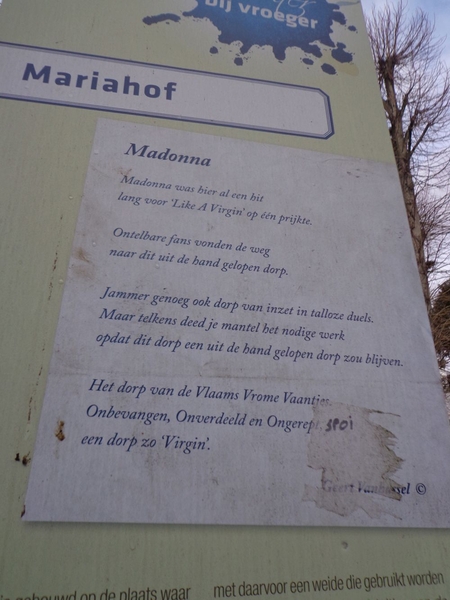 bij vroeger
Mariahof
Madonna
Madonna was hier al een hit
lang voor 'Like A Virgin' op één prijkte.
Ontelbare fans vonden de weg
naar dit uit de hand gelopen dorp.
Jammer genoeg ook dorp van inzet in talloze duels.
Maar telkens deed je mantel het nodige werk
opdat dit dorp een uit de hand gelopen dorp zou blijven.
Het dorp van de Vlaams Vrome Vaantjes
Onbevangen, Onverdeeld en Ongerep
een dorp zo 'Virgin'.
Geert
©
gebouwd op de plaats waar
met daarvoor een weide die gebruikt worden